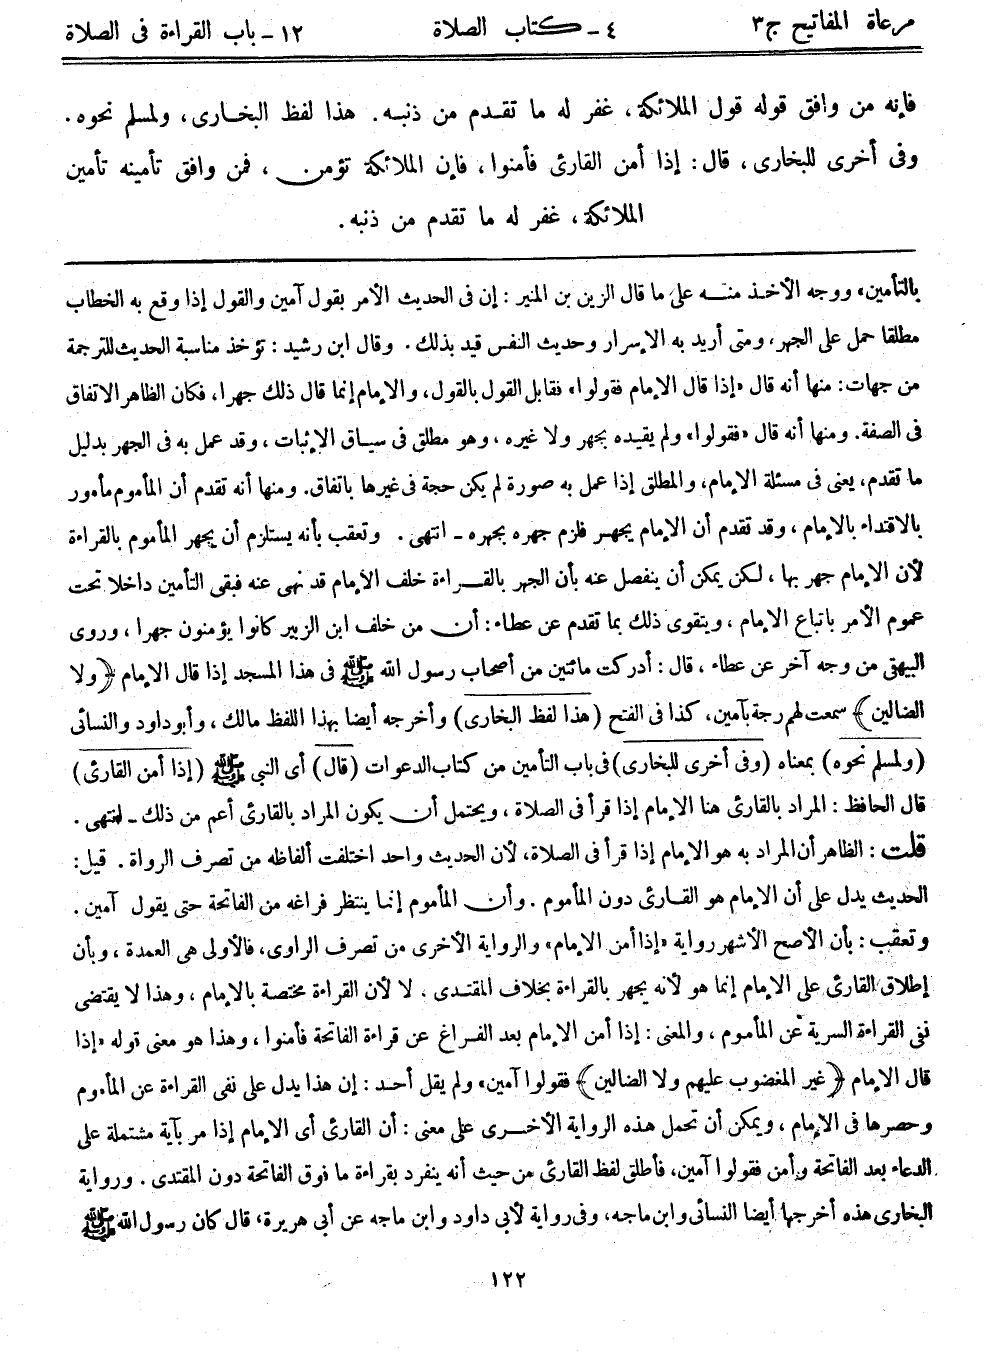 مرعاة المفاتيح ج٣ ٤ - كتاب الصلاة ١٢ - باب القراءة فى الصلاة
فإنه من وافق قوله قول الملائكة، غفر له ما تقدم من ذنبه. هذا لفظ البخارى، ولمسلم نحوه.
وفى أخرى للبخارى، قال: إذا أمن القارئ فأمنوا، فإن الملائكة تؤمن، فمن وافق تأمينه تأمين
الملائكة، غفر له ما تقدم من ذنبه.
بالتأمين، ووجه الأخذ منه على ما قال الزين بن المنير: إن فى الحديث الأمر بقول آمين والقول إذا وقع به الخطاب
مطلقا حمل على الجهر، ومتى أريد به الإسرار وحديث النفس قيد بذلك. وقال ابن رشيد: تؤخذ مناسبة الحديث للترجمة
من جهات: منها أنه قال «إذا قال الإمام فقولوا» فقابل القول بالقول، والإمام إنما قال ذلك جهرا، فكان الظاهر الاتفاق
فى الصفة. ومنها أنه قال «فقولوا» ولم يقيده بجهر ولا غيره، وهو مطلق فى سياق الإثبات، وقد عمل به فى الجهر بدليل
ما تقدم، يعنى فى مسئلة الإمام، والمطلق إذا عمل به صورة لم يكن حجة فى غيرها باتفاق. ومنها أنه تقدم أن المأموم مأمور
بالاقتداء بالإمام، وقد تقدم أن الإمام يجهر فلزم جهره بجهره - انتهى. وتعقب بأنه يستلزم أن يجهر المأموم بالقراءة
لأن الإمام جهر بها، لكن يمكن أن ينفصل عنه بأن الجهر بالقراءة خلف الإمام قد نهى عنه فبقى التأمين داخلا تحت
عموم الأمر باتباع الإمام، ويتقوى ذلك بما تقدم عن عطاء: أن من خلف ابن الزبير كانوا يؤمنون جهرا، وروى
البيهقى من وجه آخر عن عطاء، قال: أدركت مائتين من أصحاب رسول الله ﷺ فى هذا المسجد إذا قال الإمام ﴿ولا
الضالين﴾ سمعت لهم رجة بآمين، كذا فى الفتح (هذا لفظ البخارى) وأخرجه أيضا بهذا اللفظ مالك، وأبو داود والنسائى
(ولمسلم نحوه) بمعناه (وفى أخرى للبخارى) فى باب التأمين من كتاب الدعوات (قال) أى النبى ﷺ (إذا أمن القارئ)
قال الحافظ: المراد بالقارئ هنا الإمام إذا قرأ فى الصلاة، ويحتمل أن يكون المراد بالقارئ أعم من ذلك - انتهى.
قلت: الظاهر أن المراد به هو الإمام إذا قرأ فى الصلاة، لأن الحديث واحد اختلفت ألفاظه من تصرف الرواة. قيل:
الحديث يدل على أن الإمام هو القارئ دون المأموم. وأن المأموم إنما ينتظر فراغه من الفاتحة حتى يقول آمين.
وتعقب: بأن الأصح الأشهر رواية «إذا أمن الإمام» والرواية الأخرى من تصرف الراوى، فالأولى هى العمدة، وبأن
إطلاق القارئ على الإمام إنما هو لأنه يجهر بالقراءة بخلاف المقتدى. لا لأن القراءة مختصة بالإمام، وهذا لا يقتضى
نفى القراءة السرية عن المأموم، والمعنى: إذا أمن الإمام بعد الفراغ عن قراءة الفاتحة فأمنوا، وهذا هو معنى قوله «إذا
قال الإمام ﴿غير المغضوب عليهم ولا الضالين﴾ فقولوا آمين» ولم يقل أحد: إن هذا يدل على نفى القراءة عن المأموم
وحصرها فى الإمام، ويمكن أن تحمل هذه الرواية الأخرى على معنى: أن القارئ أى الإمام إذا مر بآية مشتملة على
الدعاء بعد الفاتحة وأمن فقولوا آمين، فأطلق لفظ القارئ من حيث أنه ينفرد بقراءة ما فوق الفاتحة دون المقتدى. ورواية
البخارى هذه أخرجها أيضا النسائى وابن ماجه، وفى رواية لأبى داود وابن ماجه عن أبى هريرة، قال كان رسول الله ﷺ
١٢٢